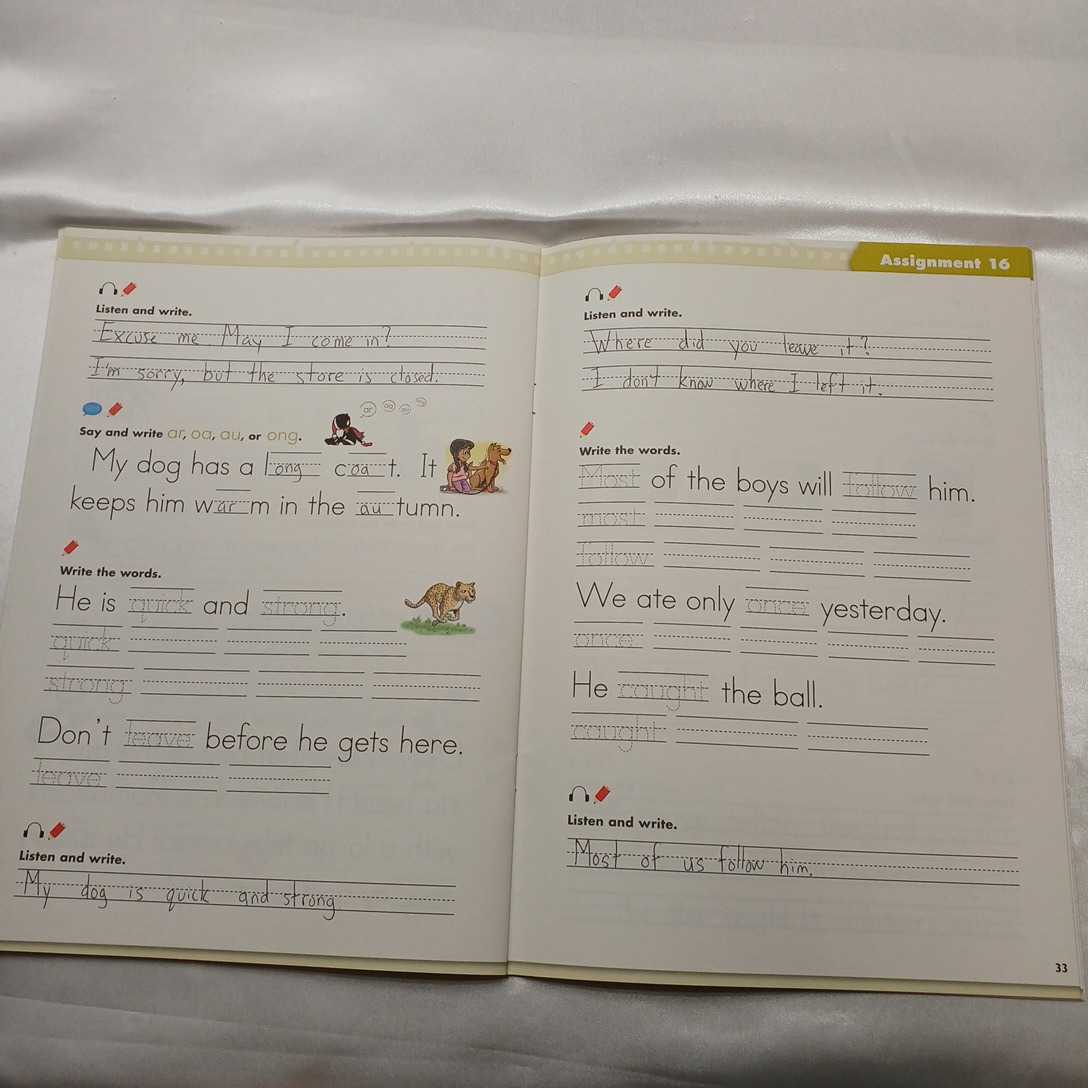 Listen and write.
Excuse me May I come in?
I'm sorry, but the store is closed.
Say and write ar, oa, au, or ong.
ar oa
My dog has a long coat. It
keeps him warm in the autumn.
Write the words.
He is quick and strong.
quick
strong
Don't leave before he gets here.
leave
Listen and write.
My dog is quick and strong
Assignment 16
Listen and write.
Where did you leave it?
I don't know where I left it.
Write the words.
Most of the boys will follow him.
most
follow
We ate only once yesterday.
once
He caught the ball.
caught
Listen and write.
Most of us follow him.
33